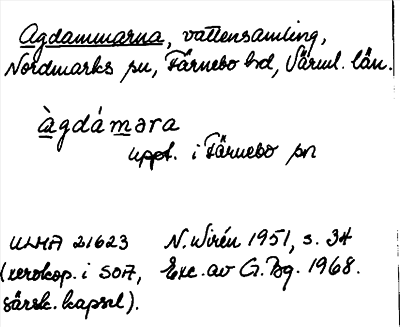 Agdammarna, vattensamling,
Nordmarks sn, Färnebo hd, Värml. län.
àgdáməra
uppt. i Färnebo sn
ULMA 21623 N. Wirén 1951, s. 34
(xerokop. i SOA, Exc. av G. Bg. 1968.
särsk. kapsel).